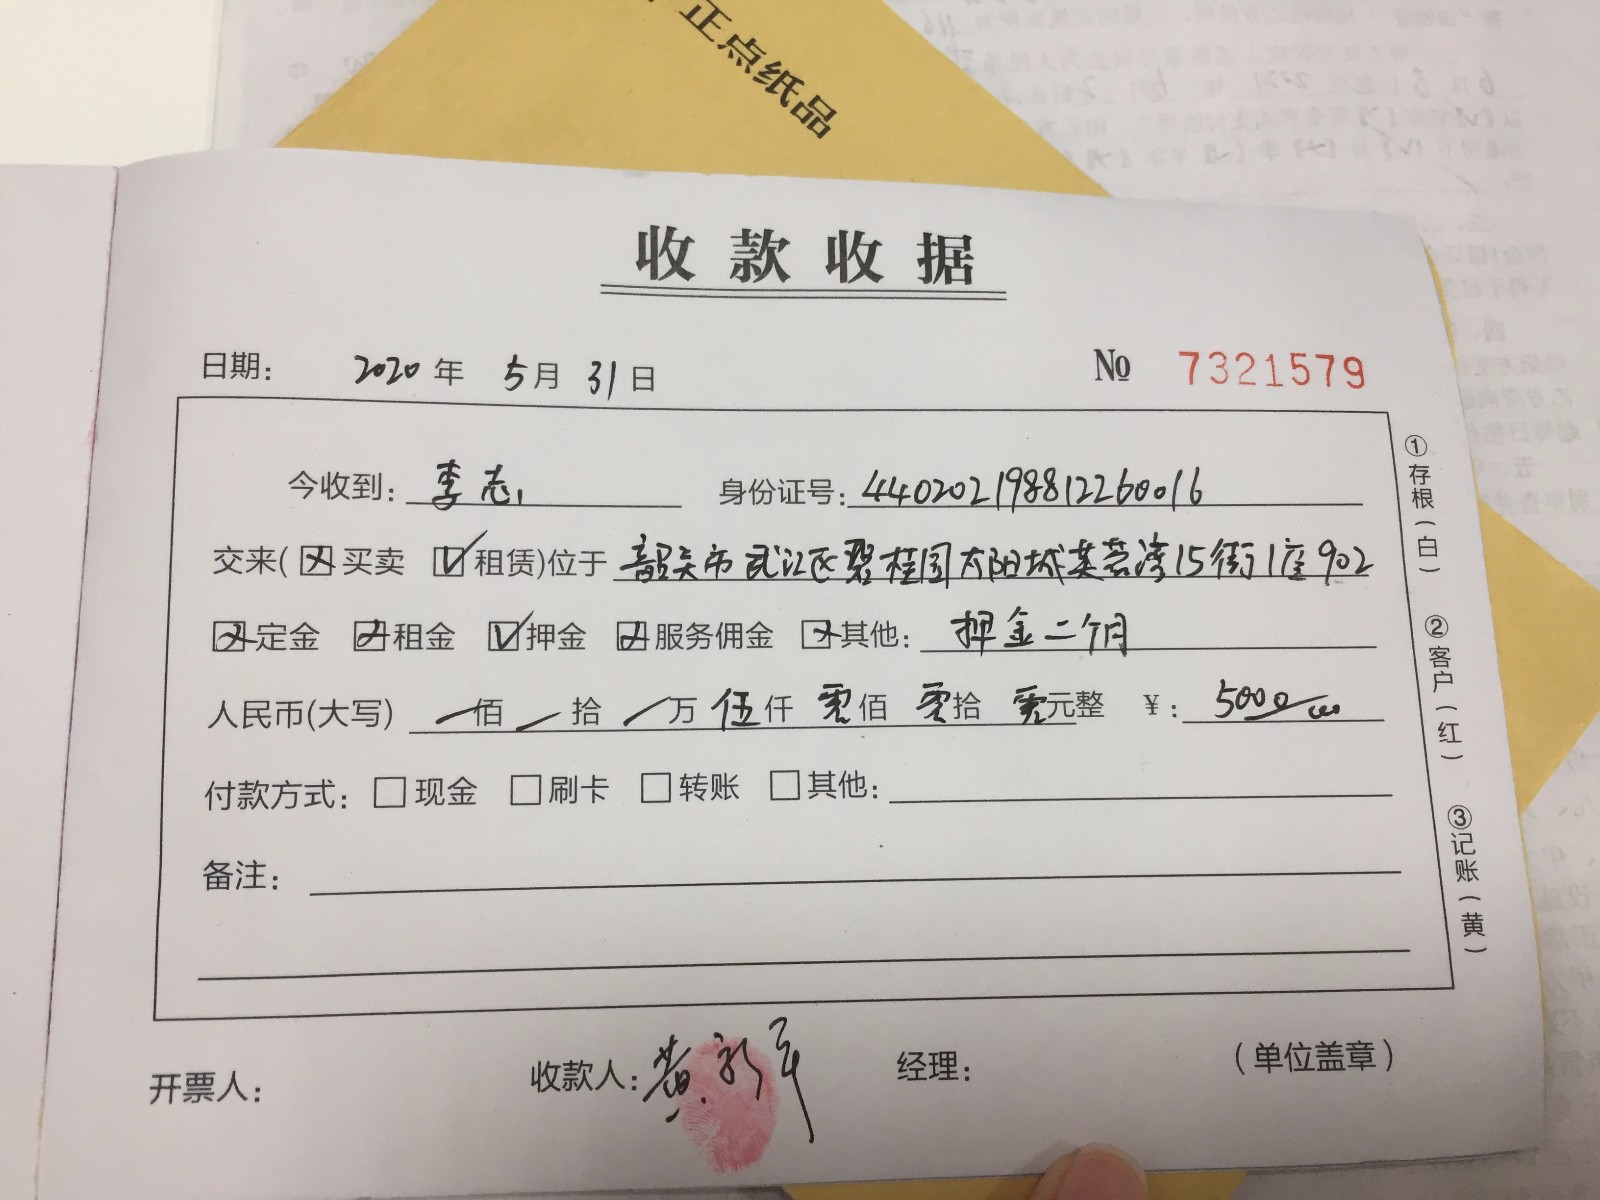 正点纸品
收款收据
日期: 2020年 5月 31日 № 7321579
今收到: 李志 身份证号: 440202198812260016
交来( 买卖 租赁)位于 韶关市武江区碧桂园太阳城芙蓉湾15街1座902
定金 租金 押金 服务佣金 其他: 押金二个月
人民币(大写) 佰 拾 万 伍仟 零佰 零拾 零元整 ¥: 5000
付款方式: 现金 刷卡 转账 其他:
备注:
①存根(白) ②客户(红) ③记账(黄)
开票人: 收款人: 黄 经理: (单位盖章)